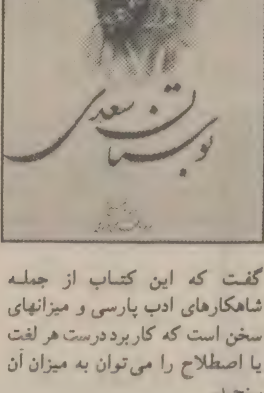 بوستان سعدی
گفت که این کتاب از جمله
شاهکارهای ادب پارسی و میزانهای
سخن است که کاربرد درست هر لغت
یا اصطلاح را می‌توان به میزان آن